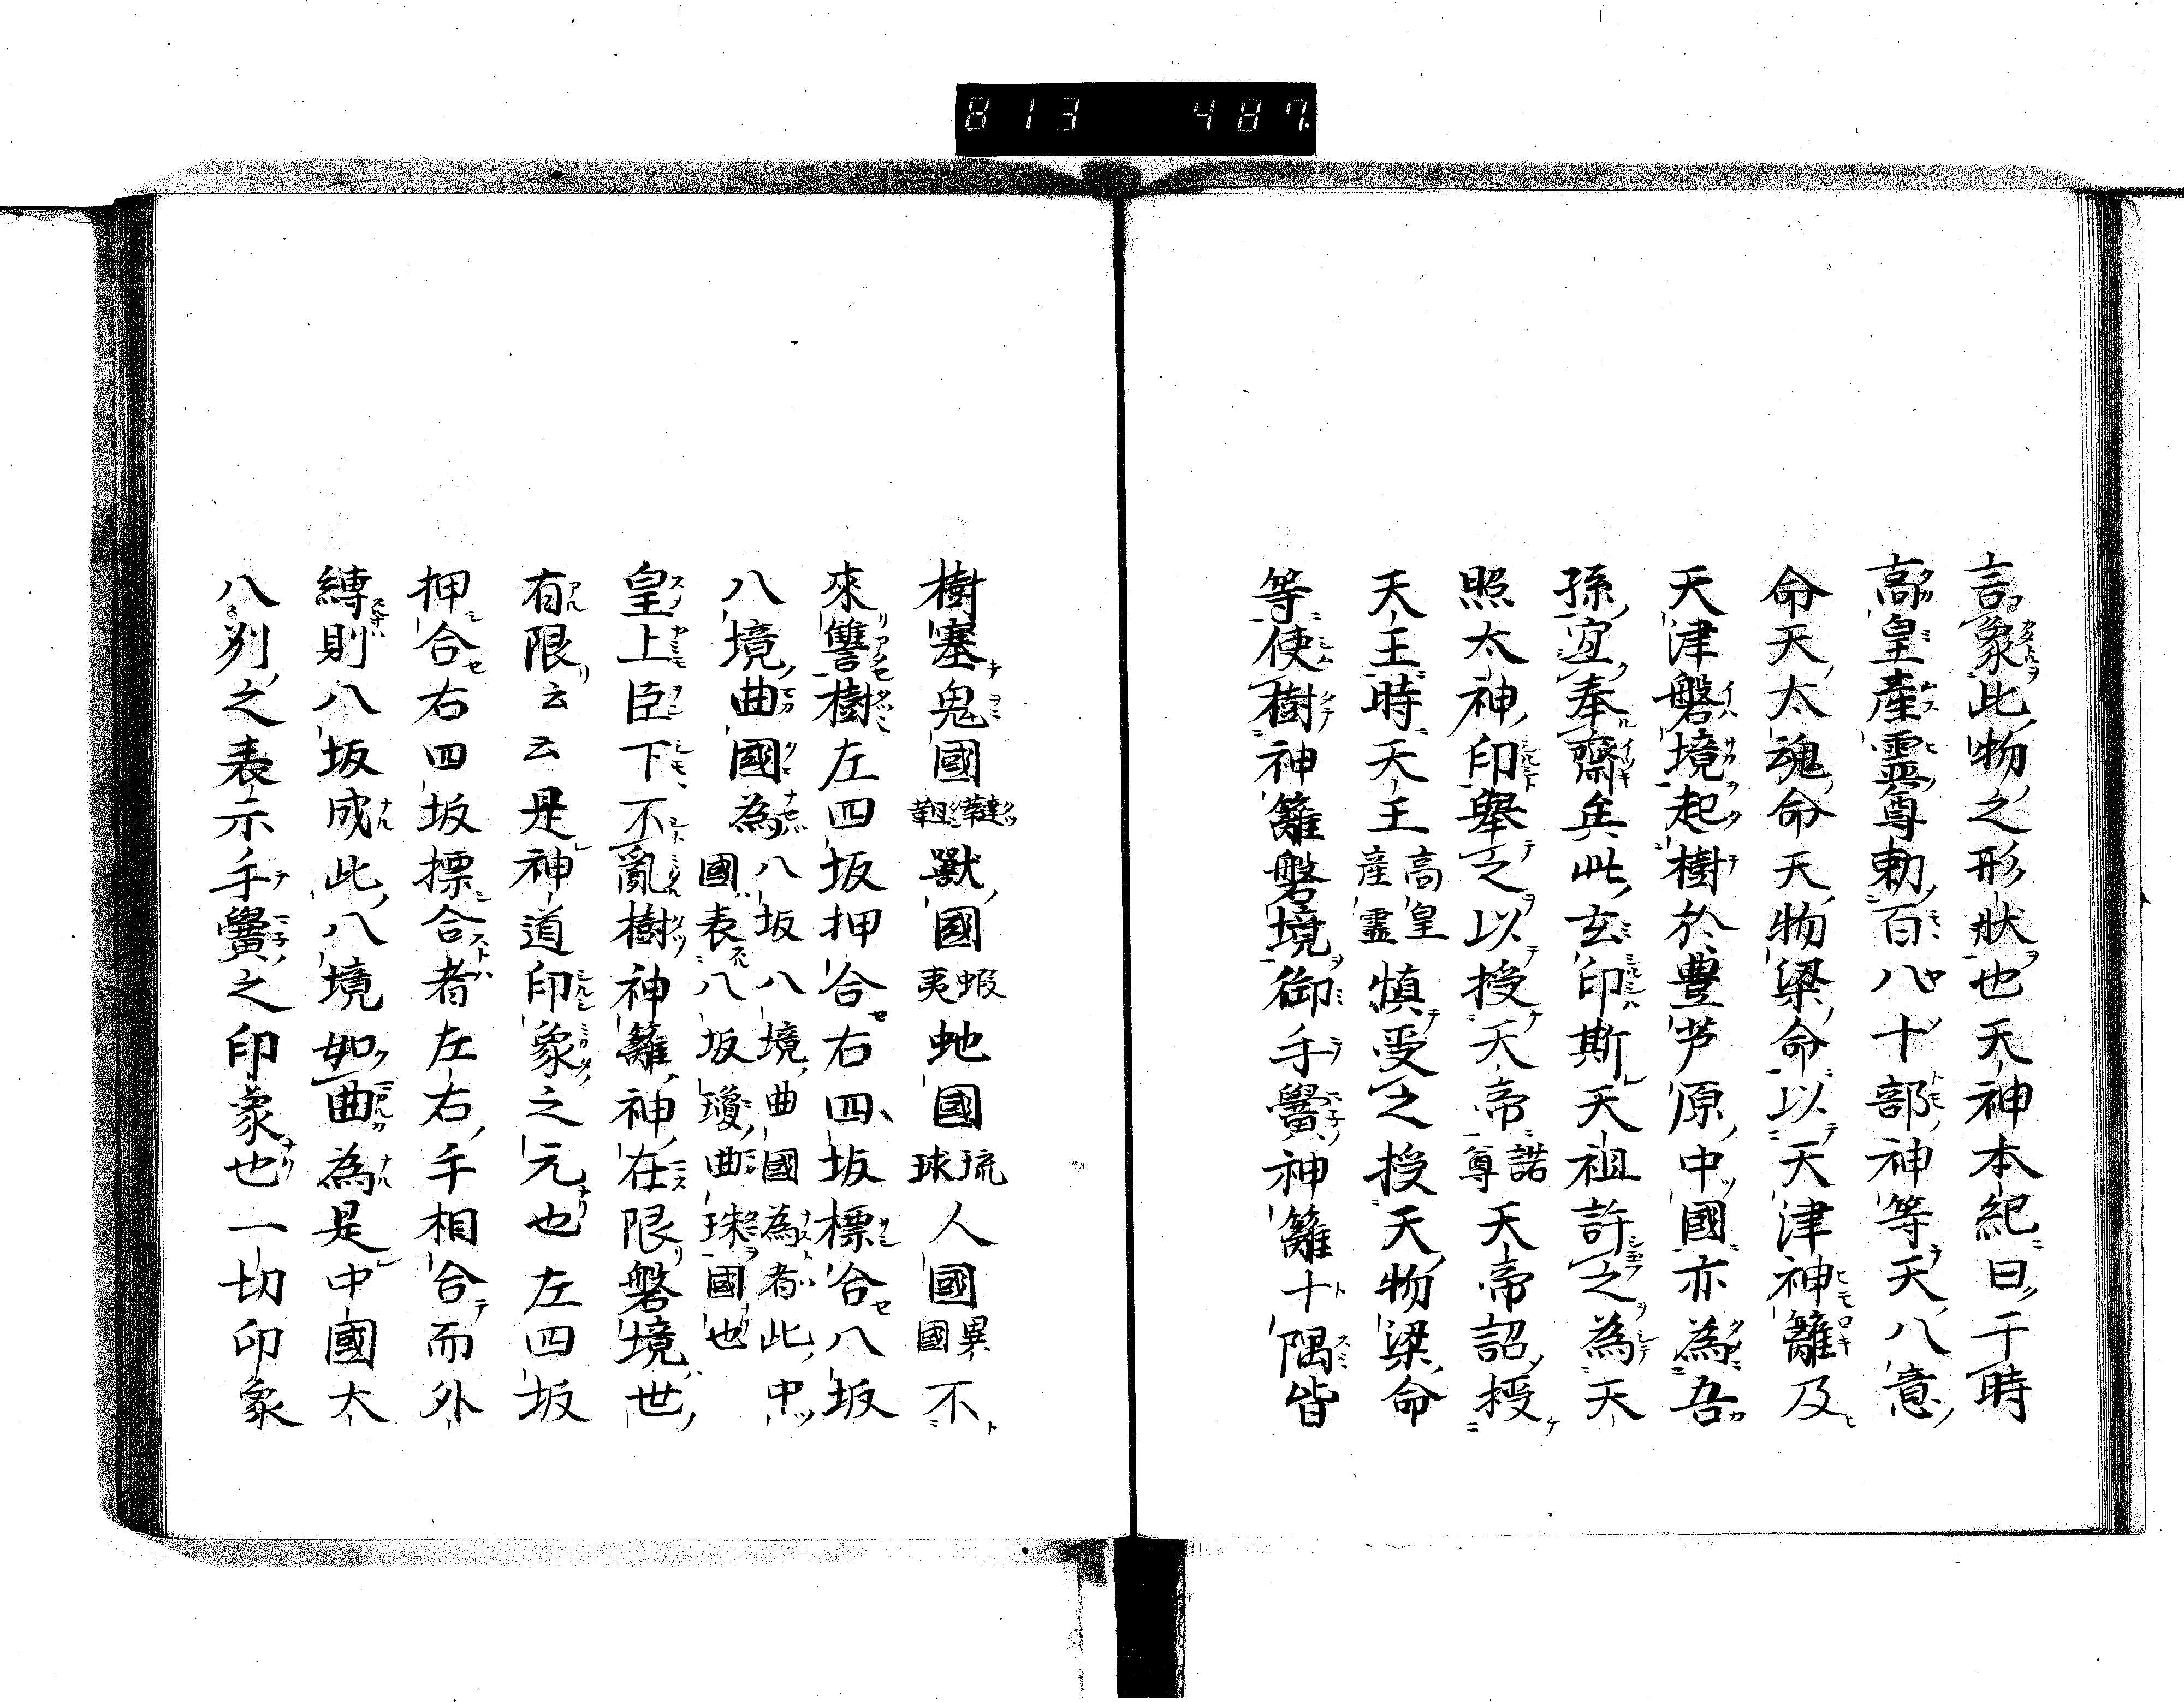 813 487.
言象此物之形狀也天神本紀曰于時
高皇產靈尊勅百八十部神等天八意
命天太魂命天物梁命以天津神籬及
天津磐境起樹於豊芦原中國亦為吾
孫宜奉齋矣此玄印斯天祖許之為天
照太神印舉之以授天帝諾尊天帝詔授
天主時天主高皇產靈慎受之授天物梁命
等使樹神籬磐境御手舋神籬十隅皆
樹塞鬼國韃靼獸國蝦夷虵國琉球人國異國不
來讐樹左四坂押合右四坂標合八坂
八境曲國為八坂八境曲國為者此中國表八坂瓊曲珠國也
皇上臣下不亂樹神籬神在限磐境世
有限云云是神道印象之元也左四坂
押合右四坂摽合者左右手相合而外
縛則八坂成此八境如曲為是中國大
八別之表示手舋之印象也一切印象